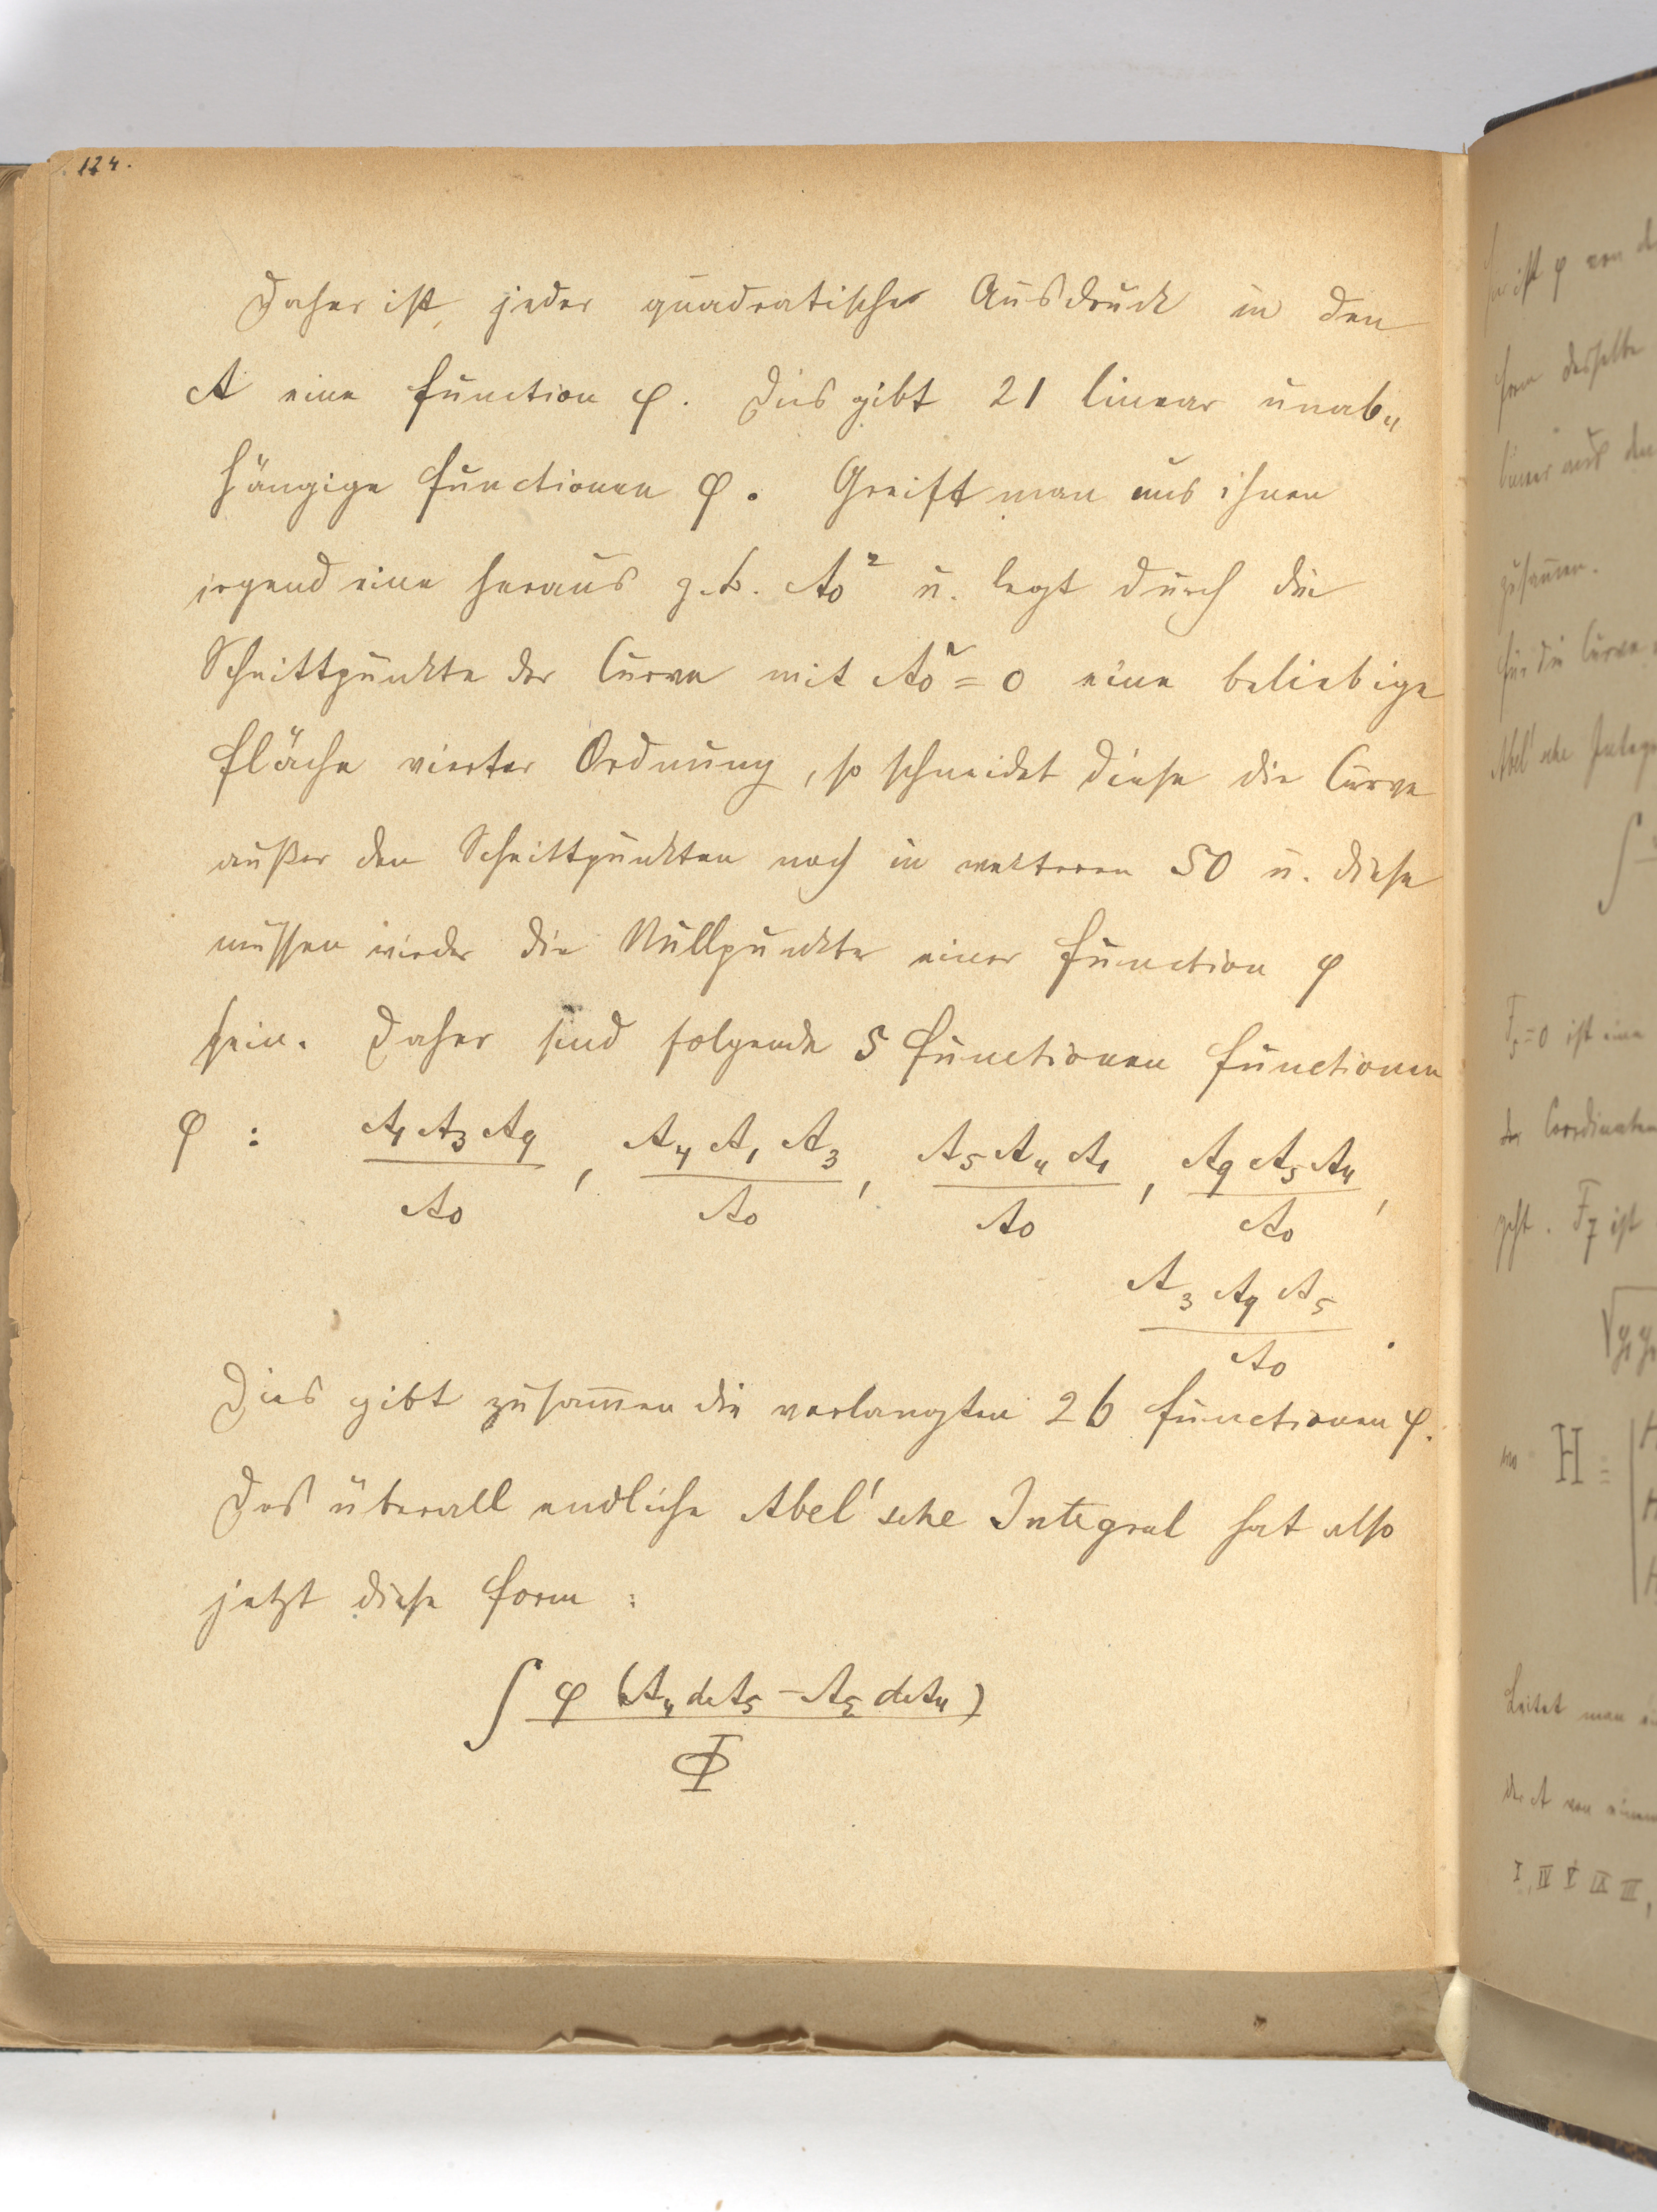 124.
Daher ist jeder quadratische Ausdruck in den
A eine Function φ. Dies gibt 21 linear unab„
hängige Functionen φ. Greift man aus ihnen
irgend eine heraus z.B. A₀² u. legt durch die
Schnittpunkte der Curve mit A₀² = 0 eine beliebige
Fläche vierter Ordnung, so schneidet diese die Curve
außer den Schnittpunkten noch in weiteren 50 u. diese
müssen wieder die Nullpunkte einer Function φ
sein. Daher sind folgende 5 Functionen Functionen
φ : A₁A₃A₉/A₀, A₄A₁A₃/A₀, A₅A₄A₁/A₀, A₉A₅A₄/A₀,
A₃A₉A₅/A₀.
Dies gibt zusam̅en die verlangten 26 Functionen φ.
Das überall endliche Abel'sche Integral hat also
jetzt diese Form :
∫ φ (A₄dA₅ – A₅dA₄) / Φ
ist φ von
Form desselbe
linear aus den
zusam̅en.
Für die Curve
Abel'sche Integ
∫
F₅=0 ist eine
der Coordinaten
geht. F₇ ist
H =
Leitet man
der A von einem
I, IV V IX III,